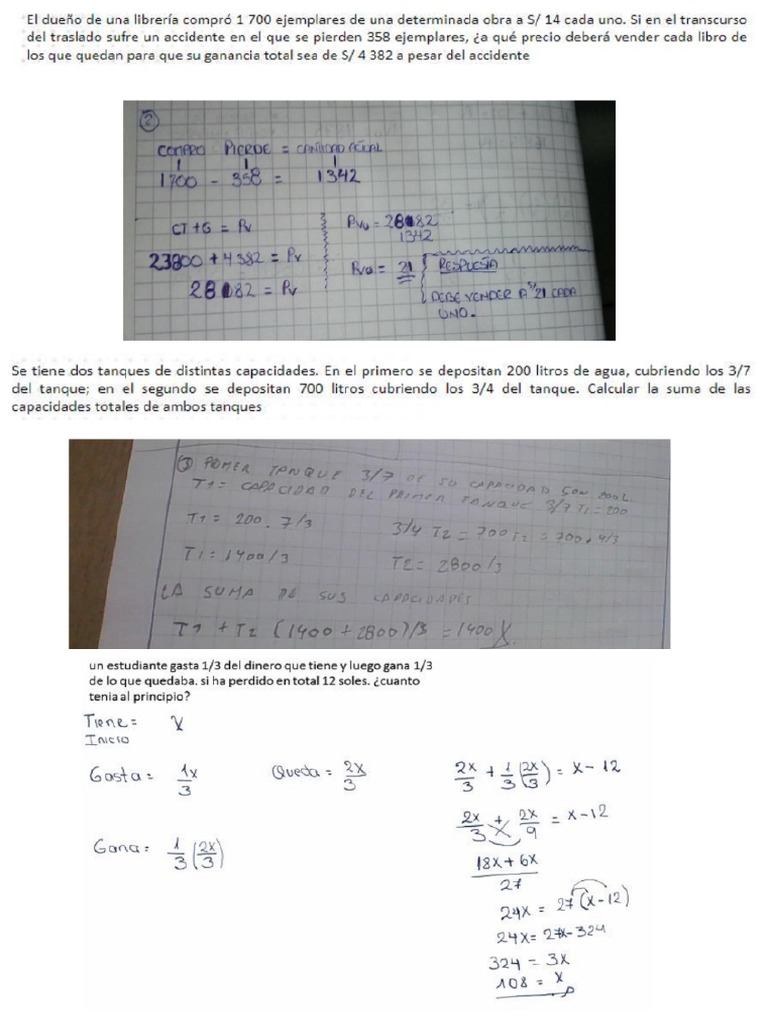 El dueño de una librería compró 1 700 ejemplares de una determinada obra a S/ 14 cada uno. Si en el transcurso
del traslado sufre un accidente en el que se pierden 358 ejemplares, ¿a qué precio deberá vender cada libro de
los que quedan para que su ganancia total sea de S/ 4 382 a pesar del accidente
2
COMPRO PIERDE = CANTIDAD ACTUAL
1700 - 358 = 1342
CT + G = Pv
23800 + 4382 = Pv
28182 = Pv
Pvu = 28182
1342
Pvu = 21
RESPUESTA
DEBE VENDER A S/21 CADA
UNO.
Se tiene dos tanques de distintas capacidades. En el primero se depositan 200 litros de agua, cubriendo los 3/7
del tanque; en el segundo se depositan 700 litros cubriendo los 3/4 del tanque. Calcular la suma de las
capacidades totales de ambos tanques
3 TANQUE 3/7 DE SU CAPACIDAD SON 200L
T1 = CAPACIDAD DEL PRIMER TANQUE 3/7 T1 = 200
T1 = 200 . 7/3
3/4 T2 = 700 T2 = 700 . 4/3
T1 = 1400/3
T2 = 2800/3
LA SUMA DE SUS CAPACIDADES
T1 + T2 (1400 + 2800)/3 = 1400
un estudiante gasta 1/3 del dinero que tiene y luego gana 1/3
de lo que quedaba. si ha perdido en total 12 soles. ¿cuanto
tenia al principio?
Tiene = X
Inicio
Gasta = 1x/3
Queda = 2x/3
Gana: 1/3 (2x/3)
2x/3 + 1/3 (2x/3) = x - 12
2x/3 + 2x/9 = x - 12
18x + 6x
27
24x = 27 (x - 12)
24x = 27x - 324
324 = 3x
108 = x